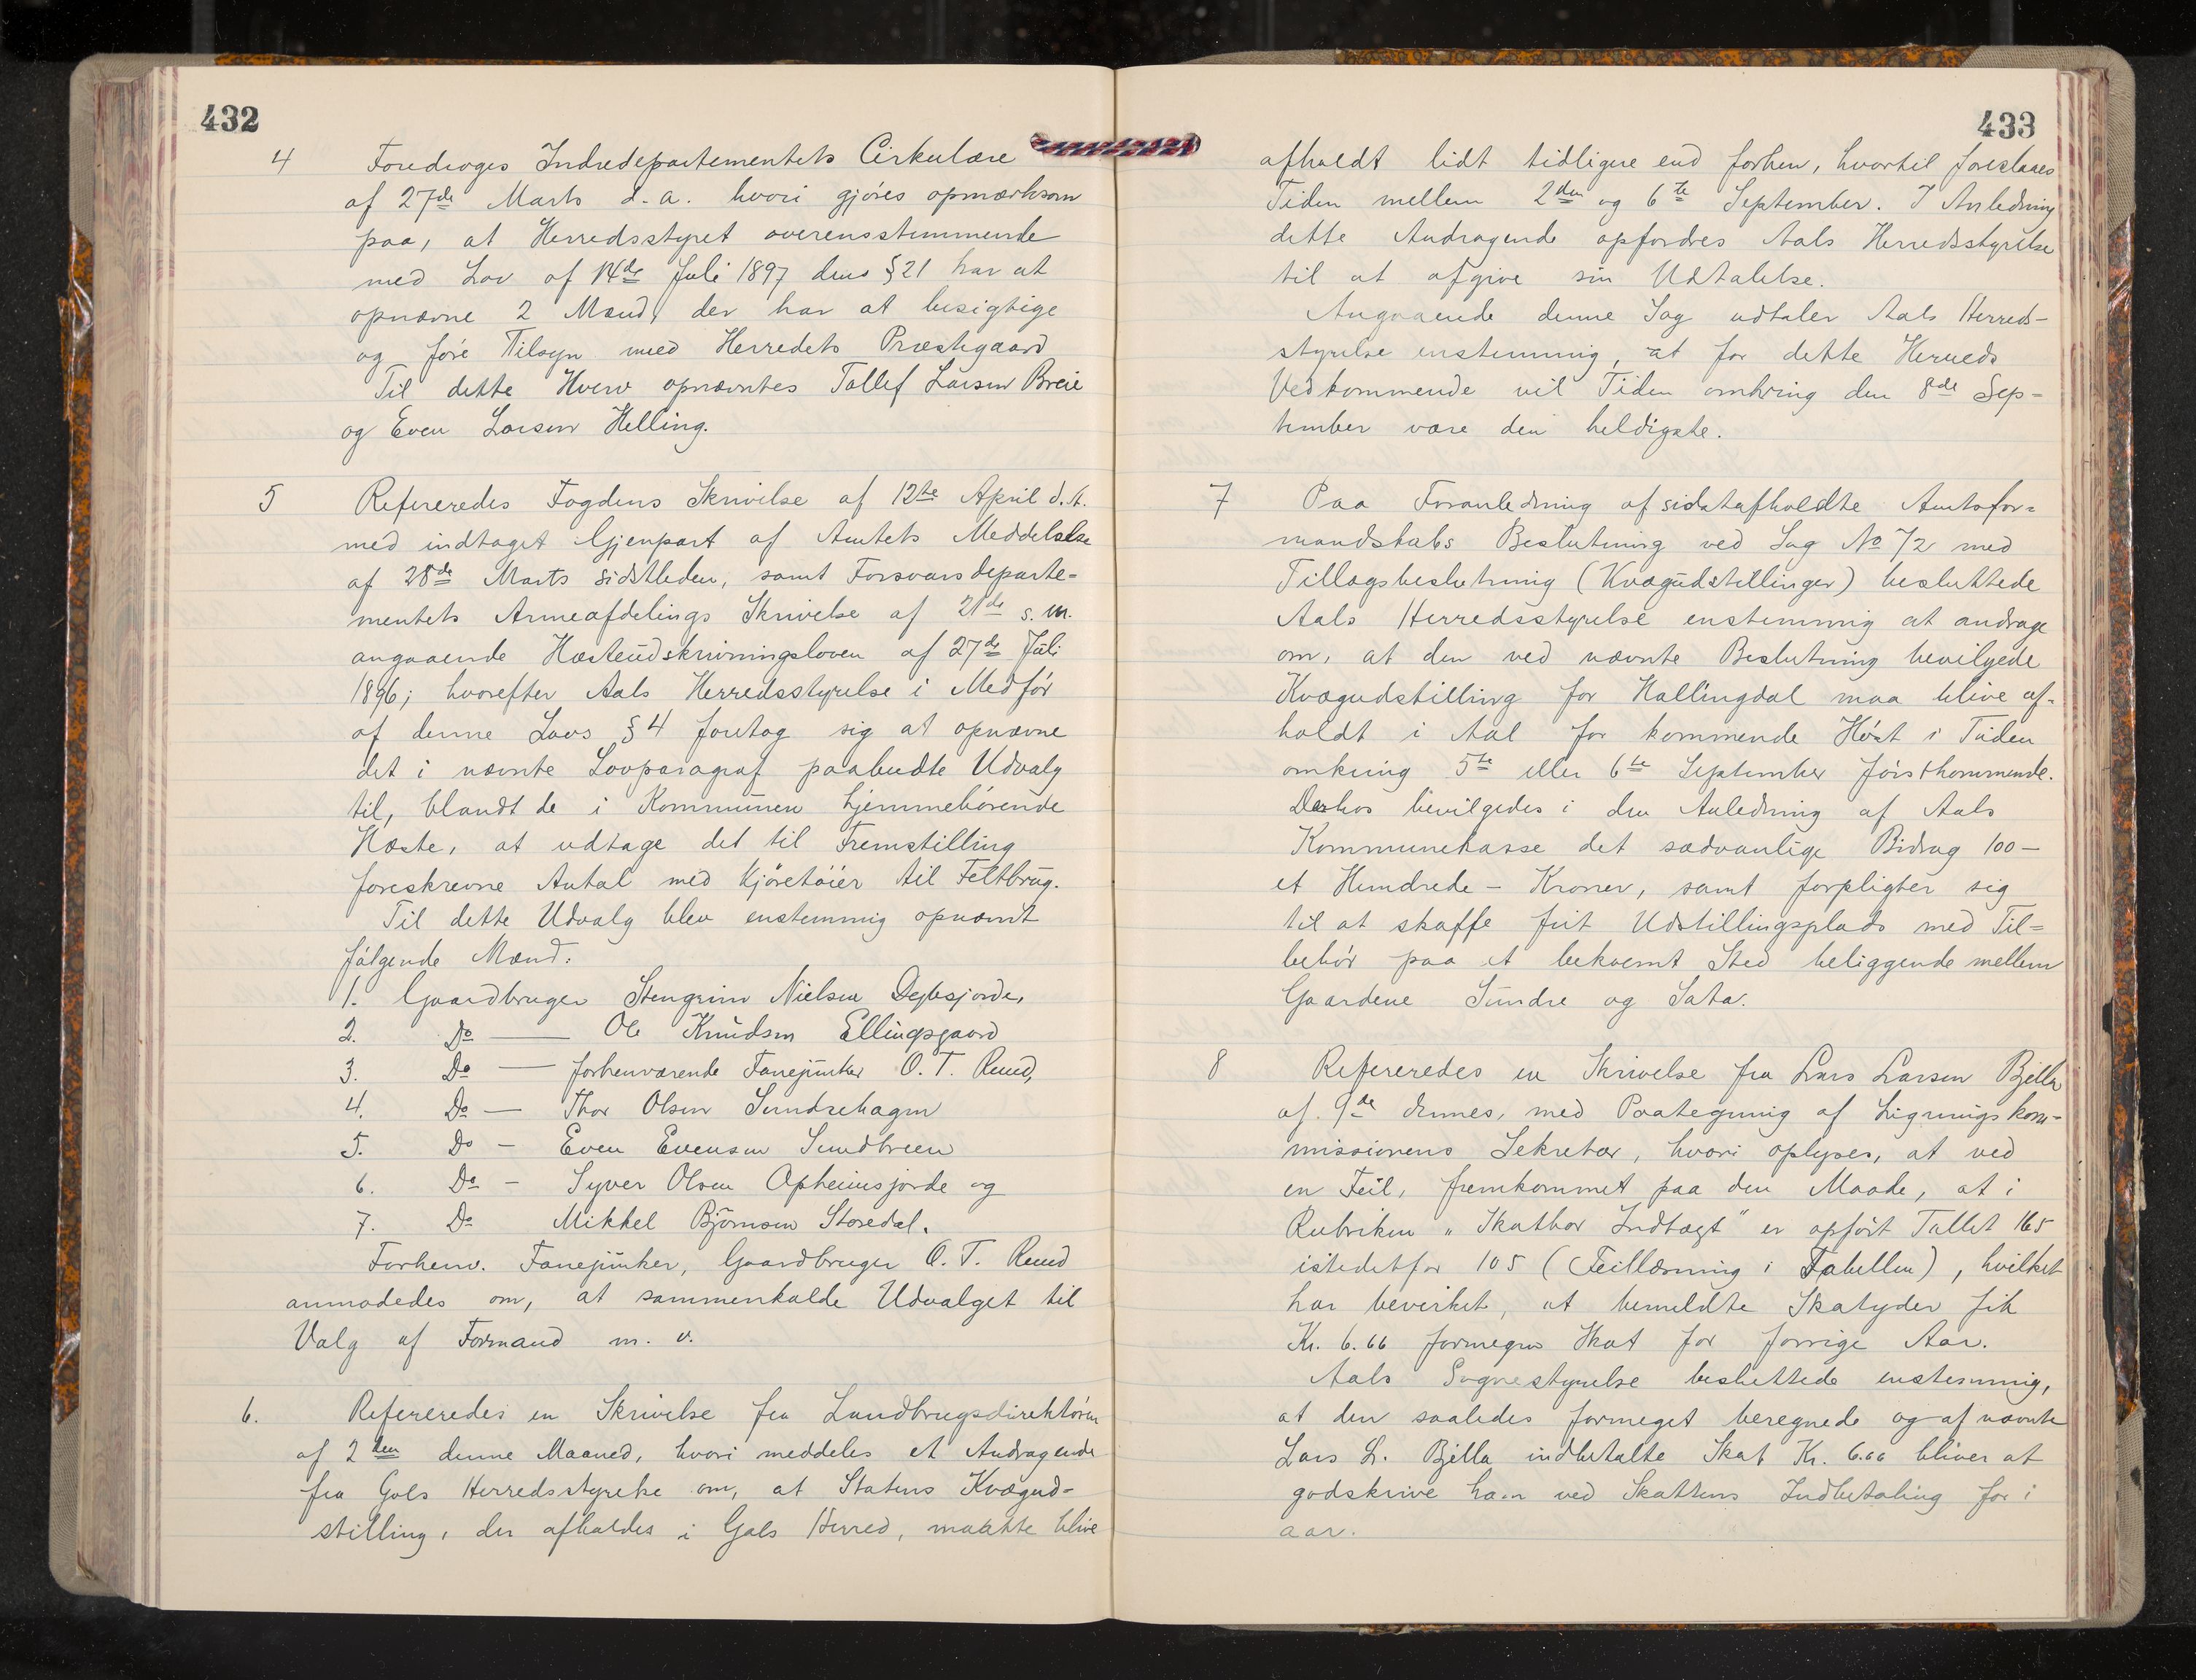 432
4 Foredroges Indredepartementets Cirkulære
af 27de Marts d.a. hvori gjøres opmærksom
paa, at Herredsstyret overensstemmende
med Lov af 14de Juli 1897 dens §21 har at
opnævne 2 Mænd, der har at besigtige
og føre Tilsyn med Herredets Præstegaard
Til dette Hverv opnævntes Tollef Larsen Breie
og Even Larsen Helling.
5 Refereredes Fogdens Skrivelse af 12te April d.A.
med indtaget Gjenpart af Amtets Meddelelse
af 28de Marts sidstleden, samt Forsvarsdeparte=
mentets Armeafdelings Skrivelse af 21de s.m.
angaaende Hesteudskrivningsloven af 27de Juli
1896; hvorefter Aals Herredsstyrelse i Medfør
af denne Lovs §4 foretog sig at opnævne
det i nævnte Lovparagraf paabudte Udvalg
til, blandt de i Kommunen hjemmehørende
Hæste, at udtage det til Fremstilling
foreskrevne Antal med Kjøretøier til Feltbrug.
Til dette Udvalg blev enstemmig opnævnt
følgende Mænd:
1. Gaardbruger Stengrim Nielsen
2. Do — Ole Knudsen Ellingsgaard
3. Do — forhenværende Fanejunker O. T. Ruud,
4. Do — Thor Olsen Sundrehagen
5. Do - Even Evensen Sundbreen
6. Do - Syver Olsen Opheimsjorde og
7. Do Mikkel Bjørnsen Storedal.
Forhenv. Fanejunker, Gaardbruger O. T. Ruud
anmodedes om, at sammenkalde Udvalget til
Valg af Formand m. v.
6. Refereredes en Skrivelse fra Landbrugsdirektøren
af 2den denne Maaned, hvori meddeles et Andragende
fra Gols Herredsstyrelse om, at Statens Kvægud=
stilling, der afholdes i Gols Herred, maatte blive
433
afholdt lidt tidligere end forhen, hvortil foreslaaes
Tiden mellem 2den og 6te September. I Anledning
dette Andragende opfordres Aals Herredsstyrelse
til at afgive sin Udtalelse.
Angaaende denne Sag udtaler Aals Herreds-
styrelse enstemmig, at for dette Herreds
Vedkommende vil Tiden omkring den 8de Sep=
tember være den heldigste.
7 Paa Foranledning af sidstafholdte Amtsfor=
mandskabs Beslutning ved Sag No 72 med
Tillægsbeslutning (Kvægudstillinger) besluttede
Aals Herredsstyrelse enstemmig at andrage
om, at den ved nævnte Beslutning bevilgede
Kvægudstilling for Hallingdal maa blive af=
holdt i Aal for kommende Høst i Tiden
omkring 5te eller 6te September førstkommende.
Derhos bevilgedes i den Anledning af Aals
Kommunekasse det sædvanlige Bidrag 100—
et Hundrede - Kroner, samt forpligter sig
til at skaffe frit Udstillingsplads med Til=
behør paa et bekvemt Sted beliggende mellem
Gaardene Sundre og Sata.
8 Refereredes en Skrivelse fra Lars Larsen Bjella
af 9de dennes, med Paategning af Ligningskom=
missionens Sekretær, hvori oplyses, at ved
en Feil, fremkommet paa den Maade, at i
Rubriken „Skatbar Indtægt" er opført Tallet 165
istedetfor 105 (Feillæsning i Tabellen), hvilket
har bevirket, at bemeldte Skatyder fik
Kr. 6.66 formegen Skat for forrige Aar.
Aals Sognestyrelse besluttede enstemmig,
at den saaledes formeget beregnede og af nævnte
Lars L. Bjella indbetalte Skat Kr. 6.66 bliver at
godskrive ham ved Skattens Indbetaling for i
aar.